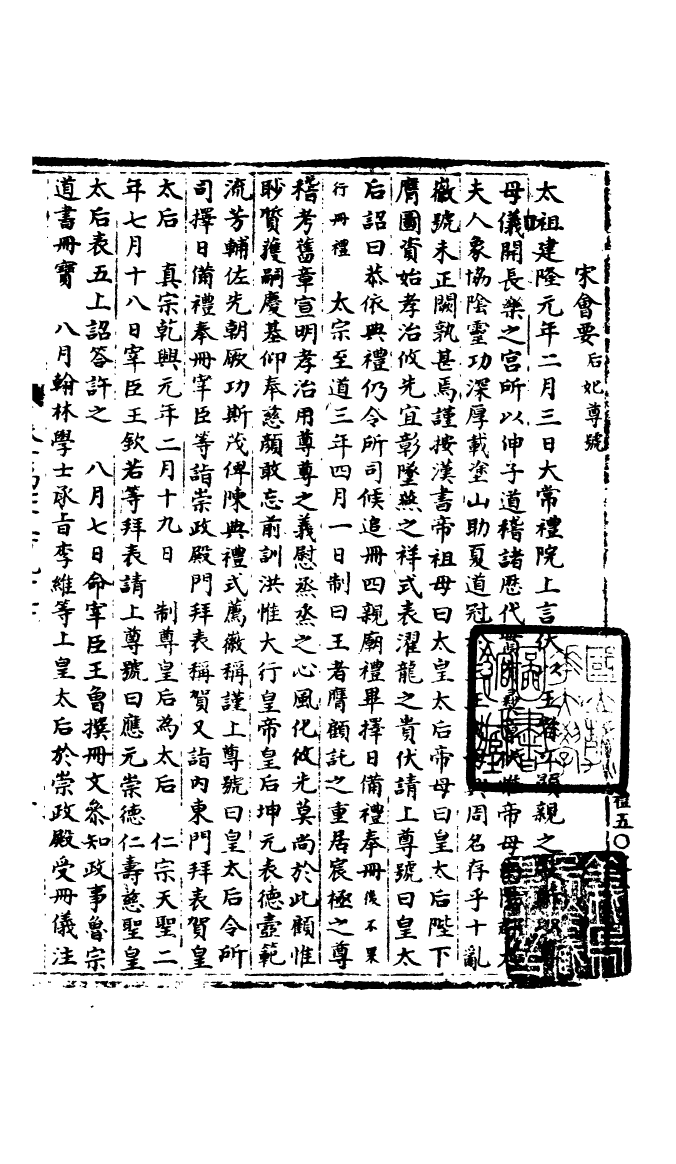 宋會要 后妃尊號
太祖建隆元年二月三日大常禮院上言伏以王者丕顯親之
母儀開長樂之宮所以伸子道稽諸歷代帝母
夫人象協陰靈功深厚載塗山助夏道冠周名存乎十亂
徽號未正闕孰甚焉謹按漢書帝祖母曰太皇太后帝母曰皇太后陛下
膺圖資始孝治攸先宜彰墜燕之祥式表濯龍之貴伏請上尊號曰皇太
后詔曰恭依典禮仍令所司候追冊四親廟禮畢擇日備禮奉冊後不果
行冊禮 太宗至道三年四月一日制曰王者膺顧託之重居宸極之尊
稽考舊章宣明孝治用尊尊之義慰烝烝之心風化攸先莫尚於此顧惟
眇質獲嗣慶基仰奉慈顔敢忘前訓洪惟大行皇帝皇后坤元表德壼範
流芳輔佐先朝厥功斯茂俾陳典禮式薦徽稱謹上尊號曰皇太后令所
司擇日備禮奉冊宰臣等詣崇政殿門拜表稱賀又詣內東門拜表賀皇
太后 真宗乾興元年二月十九日 制尊皇后為太后 仁宗天聖二
年七月十八日宰臣王欽若等拜表請上尊號曰應元崇德仁壽慈聖皇
太后表五上詔答許之 八月七日命宰臣王曾撰冊文參知政事魯宗
道書冊寶 八月翰林學士承旨李維等上皇太后於崇政殿受冊儀注
禮五〇